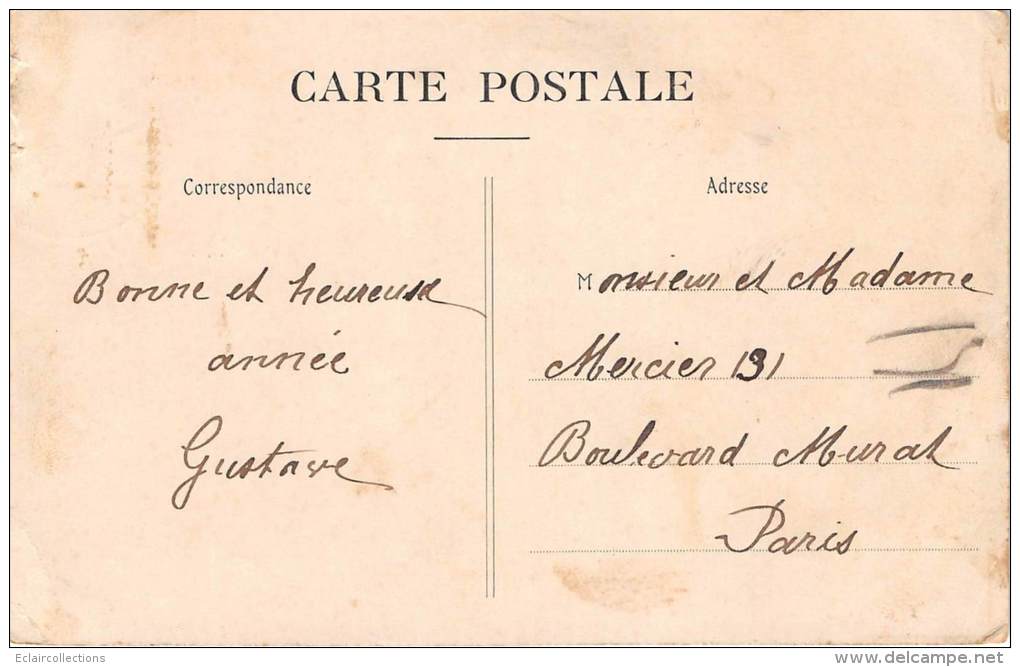 CARTE POSTALE
Correspondance
Bonne et heureuse
année
Gustave
Adresse
Monsieur et Madame
Mercier 131
Boulevard Murat
Paris
Eclaircollections
www.delcampe.net